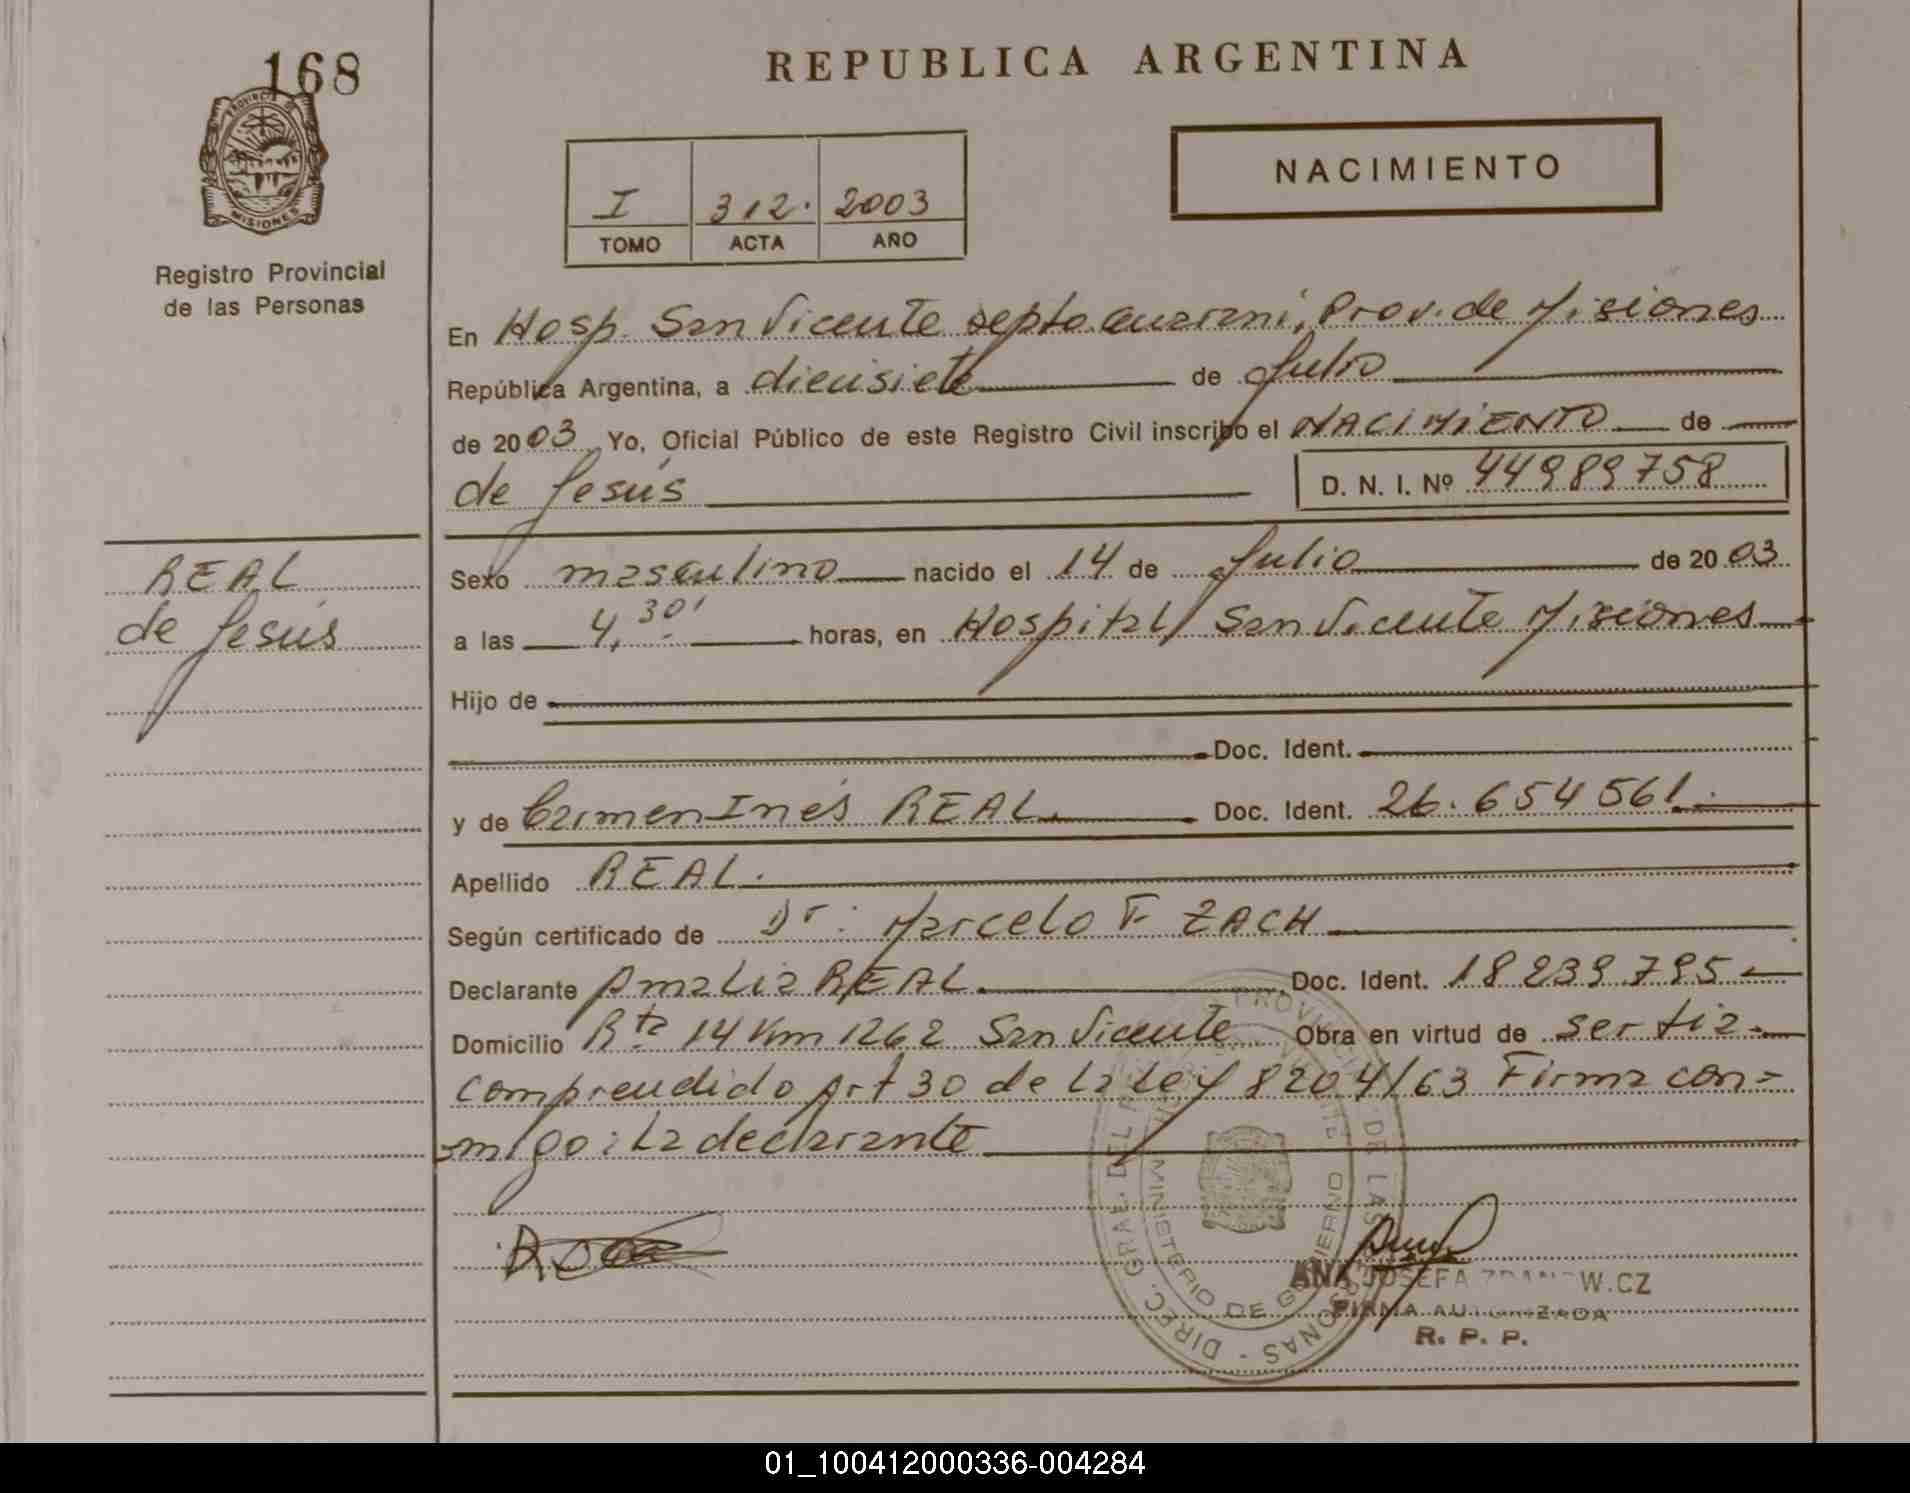 168
REPUBLICA ARGENTINA
PROVINCIA DE
MISIONES
Registro Provincial
de las Personas
NACIMIENTO
I 312. 2003
TOMO ACTA AÑO
En Hosp. San Vicente Depto. Guarani, Prov. de Misiones
República Argentina, a diecisiete de Julio
de 2003 Yo, Oficial Público de este Registro Civil inscribo el NACIMIENTO de
de Jesús D. N. I. Nº 44989758
REAL
de Jesús
Sexo masculino nacido el 14 de Julio de 2003
a las 4,30' horas, en Hospital San Vicente Misiones
Hijo de
Doc. Ident.
y de Carmen Inés REAL Doc. Ident. 26.654561.
Apellido REAL.
Según certificado de Dr: Marcelo F ZACH
Declarante Amalia REAL. Doc. Ident. 18239795
Domicilio Rta 14 Km 1262 San Vicente Obra en virtud de ser tia
comprendido Art 30 de la ley 8204/63 Firma con=
migo: la declarante
DIREC. GRAL. DEL PROVINCIAL DE LAS PERSONAS
MINISTERIO DE GOBIERNO
ANA JOSEFA
FIRMA AUTORIZADA
R. P. P.
01_100412000336-004284